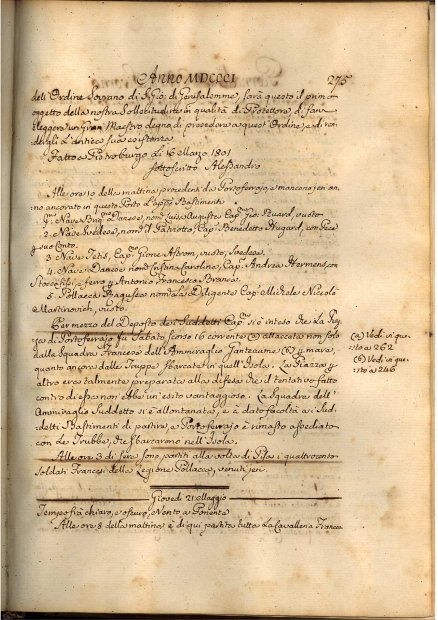 Anno MDCCCI 275
dell'Ordine Sovrano di S. Gio: di Gerusalemme, sarà questo il primo
oggetto della nostra Sollecitudine in qualità di Protettore, di fare
eleggere un Gran Maestro degno di procedere a quest'Ordine, e di ren-
dergli l'antica sua esistenza.
Fatto a Pietroburgo di 16 Marzo 1801
sottoscritto Alessandro
Alle ore 10 della mattina procedenti da Portoferrajo e mancano jeri an-
no ancorato in questo Porto l'app. Bastimenti
Nave Danese, nom. Luisa Augusta Cap. Gio: vuoto
2. Nave Svedese, nom. il Patriotto, Cap. Benedetto Hugard, con Pece
suo Conto.
3. Nave Tetis, Cap. Giona Astrom, vuoto, Svedese.
4. Nave Danese nom. Cristina Carolina, Cap. Andrea Hermens, con
Stoccofisc, e ferro a Antonio Francesco Branca.
5. Pollacca Ragusea nom. La Diligente Cap. Michele Niccolò
Martinovich, vuoto.
Per mezzo del Deposto de i Suddetti Cap. si è inteso che La Piaz-
za di Portoferrajo fu Sabato scorso 16 corrente (a) attaccata non solo
dalla Squadra Francese dell'Ammiraglio Janteaume (b) x mare,
quanto ancora dalle Truppe sbarcate in quell'Isola. La Piazza x
altro era talmente preparata alla difesa che il tentativo fatto
contro di essa non ebbe un esito vantaggioso. La Squadra dell'
Ammiraglio Suddetto si è allontanata, e è dato facoltà a i Sud-
detti Bastimenti di partire, e Portoferrajo è rimasto assediato
con le Truppe, che sbarcarono nell'Isola.
(a) Vedi in que-
sto a 262
(b) Vedi in que-
sto a 246
Alle ore 3 di sera sono partiti alla volta di Pisa i quattrocento
Soldati Francesi della Legione Pollacca, venuti jeri.
Giovedì 21 Maggio
Tempo frà chiaro, e oscuro, Vento a Ponente
Alle ore 8 della mattina è di qui partita tutta La Cavalleria Francese